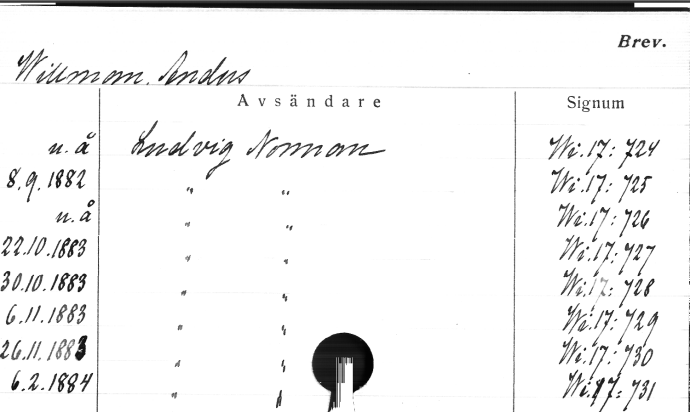 Brev.
Willman, Andus
Avsändare Signum
u. å Ludvig Norman Wi. 17: 724
8.9.1882 " " Wi. 17: 725
u. å " " Wi. 17: 726
22.10.1883 " " Wi. 17: 727
30.10.1883 " " Wi. 17: 728
6.11.1883 " " Wi. 17: 729
26.11.1883 " " Wi. 17: 730
6.2.1884 " " Wi. 17: 731